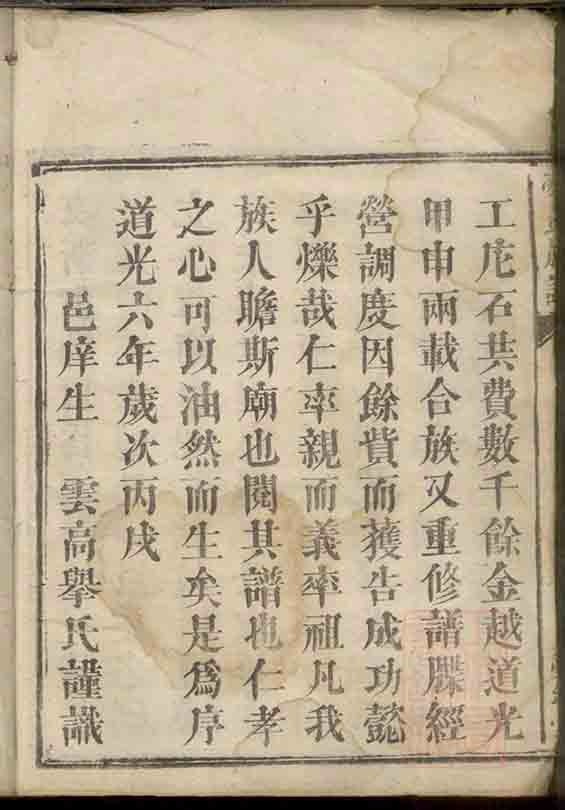 工庀石共費數千餘金越道光
甲申兩載合族又重修譜牒經
營調度因餘貲而獲告成功懿
乎爍哉仁率親而義率祖凡我
族人瞻斯廟也閱其譜也仁孝
之心可以油然而生矣是為序
道光六年歲次丙戌
邑庠生 雲高舉氏謹識